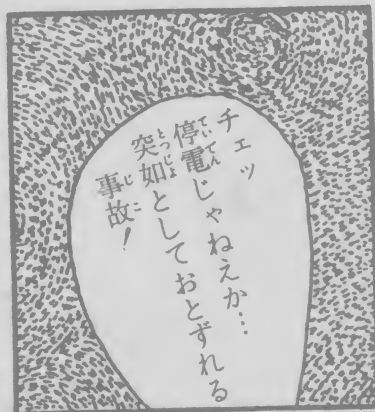 チェッ
停電じゃねえか…
突如としておとずれる
事故!